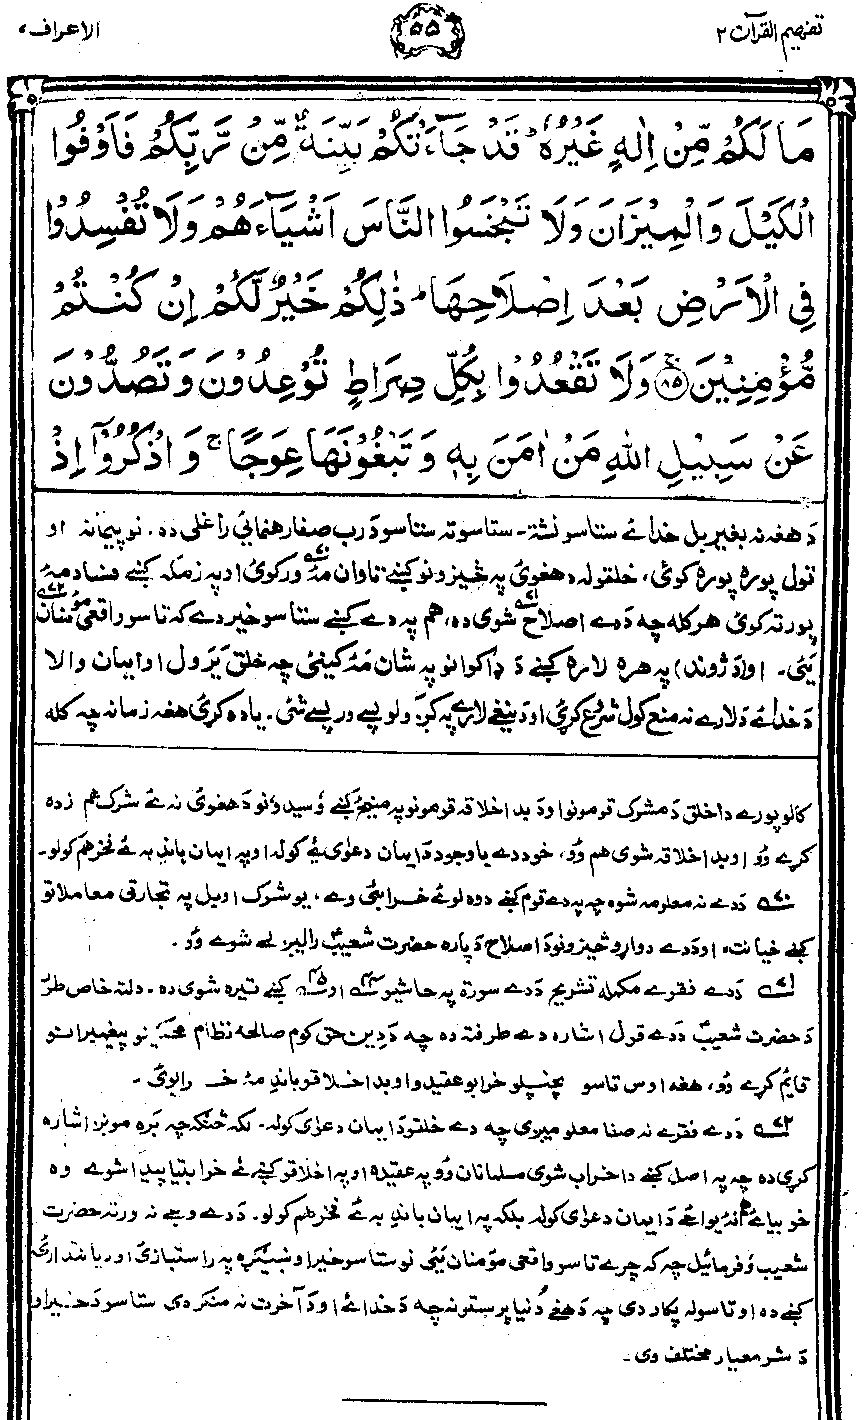 تفہیم القرآن ۲ ۵۵ الاعراف ۷
مَا لَكُمْ مِّنْ اِلٰهٍ غَيْرُهٗ ؕ قَدْ جَآءَتْكُمْ بَيِّنَةٌ مِّنْ رَّبِّكُمْ فَاَوْفُوا
الْكَيْلَ وَالْمِيْزَانَ وَلَا تَبْخَسُوا النَّاسَ اَشْيَآءَهُمْ وَلَا تُفْسِدُوْا
فِي الْاَرْضِ بَعْدَ اِصْلَاحِهَا ؕ ذٰلِكُمْ خَيْرٌ لَّكُمْ اِنْ كُنْتُمْ
مُّؤْمِنِيْنَ ۸۵ وَلَا تَقْعُدُوْا بِكُلِّ صِرَاطٍ تُوْعِدُوْنَ وَتَصُدُّوْنَ
عَنْ سَبِيْلِ اللّٰهِ مَنْ اٰمَنَ بِهٖ وَتَبْغُوْنَهَا عِوَجًا ۚ وَاذْكُرُوْٓا اِذْ
دَ هغه نه بغير بل خدائے ستاسو نشته - ستاسو ته ستاسو دَ رب صفا رهنمائي راغلى ده . نو پيمانه او
تول پوره پوره کوئ، خلقو له دهغوئ په څيزونو کښے تاوان مۀ ورکوئ او په زمکه کښے فساد مۀ
پورته کوئ هر کله چه دَدے اصلاح شوى ده، هم په دے کښے ستاسو خير دے که تاسو واقعى مؤمنان
يئ . او (دَ ژوند) په هره لاره کښے دَ ډاکوانو په شان مۀ کينئ چه خلق يَرَول او ايمان والا
دَ خدائے دَ لارے نه منع کول شروع کړئ او دَ نيغے لارے په کږولو پسے ورپسے شئ . ياده کړئ هغه زمانه چه کله
کالو پورے دا خلق دَ مشرک قومونو او دَ بد اخلاقه قومونو په منځ کښے وسيدۀ نو دَ هغوئ نه ئے شرک هم زده
کړے وُو او بد اخلاقه شوى هم وُو، خو ددے باوجود دَ ايمان دعوٰى ئے کوله او په ايمان باندے ئے فخر هم کولو.
۷۰ دَدے نه معلومه شوه چه په دے قوم کښے دوه لوئے خرابئ وے، يو شرک او بل په تجارتى معاملاتو
کښے خيانت، او دَدے دواړو څيزونو دَ اصلاح دَ پاره حضرت شعيبؑ راليږلے شوے وُو .
۷۱ دَدے فقرے مکمله تشريح دَدے سورة په حاشيو ۴۴ او ۴۵ کښے تيره شوى ده . دلته خاص طور
دَ حضرت شعيبؑ دَدے قول اشاره دے طرف ته ده چه دَ دين حق کوم صالحه نظام پيغمبرانو
قائم کړے وُو، هغه اوس تاسو په خپلو خرابو عقيدو او بد اخلاقو باندے مۀ خرابوئ .
۷۲ دَدے فقرے نه صفا معلوميږى چه دے خلقو دَ ايمان دعوٰى کوله . لکه څنګه چه بَره مونږ اشاره
کړى ده چه په اصل کښے دا خراب شوى مسلمانان وُو په عقيده او په اخلاقو کښے ئے خرابتيا پيدا شوے وه
خو بيا ئے هم نه يواځے دَ ايمان دعوٰى کوله بلکه په ايمان باندے ئے فخر هم کولو. دَدے وجے نه ورته حضرت
شعيب وفرمائيل چه که چرے تاسو واقعى مؤمنان يئ نو ستاسو خير او ښيګړه په راستبازئ او ديانتدارئ
کښے ده او تاسو له پکار دى چه دَ هغے دُنيا پرستو نه چه دَ خدائے او دَ آخرت نه منکر دى ستاسو دَ خير او
دَ شر معيار مختلف وى .